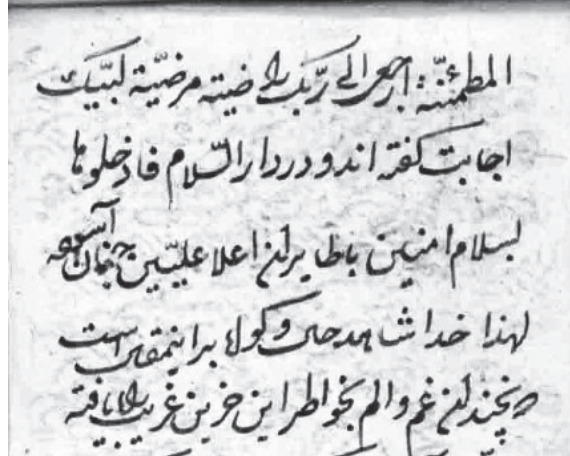 المطمئنّة ارجعی الی ربّک راضیته مرضیّة لبّیک
اجابت کفته اند و در دار السّلام فادخلوها
بسلام امنین باطایران اعلا علیّین جنان آسوده
لهذا خدا شاهد حال و کواه براینمقال است
که چندان غم و الم بخواطر این حزین غریب راه یافته